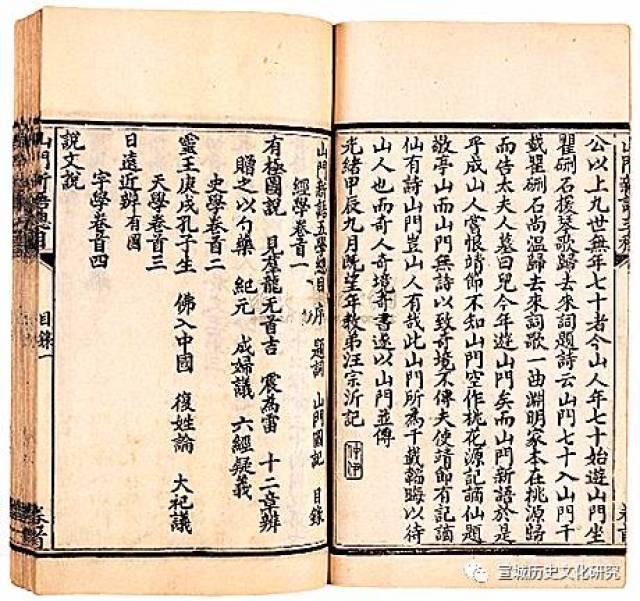 山門新語
卷首
公以上九世無年七十者今山人年七十始遊山門坐
瞿硎石援琴歌歸去來詞題詩云山門七十入山門千
載瞿硎石尚温歸去來詞歌一曲淵明家本在桃源歸
而告太夫人墓曰兒今年遊山門矣而山門新語於是
乎成山人嘗恨靖節不知山門空作桃花源記謫仙題
敬亭山而山門無詩以致奇境不傳夫使靖節有記謫
仙有詩山門豈山人有哉此山門所為千載韜晦以待
山人也而奇人奇境奇書遂以山門並傳
光緒甲辰九月既望年教弟汪宗沂記
仲伊
山門新語五學總目 序 題詞 山門圖記 目錄
經學卷首一
有極圖說 見羣龍无首吉 震為雷 十二章辨
贈之以勺藥 紀元 成婦議 六經疑義
史學卷首二
靈王庚戌孔子生 佛入中國 復姓論 大祀議
天學卷首三
日遠近辨有圖
字學卷首四
說文說
山門新語總目 目錄一
宣城历史文化研究